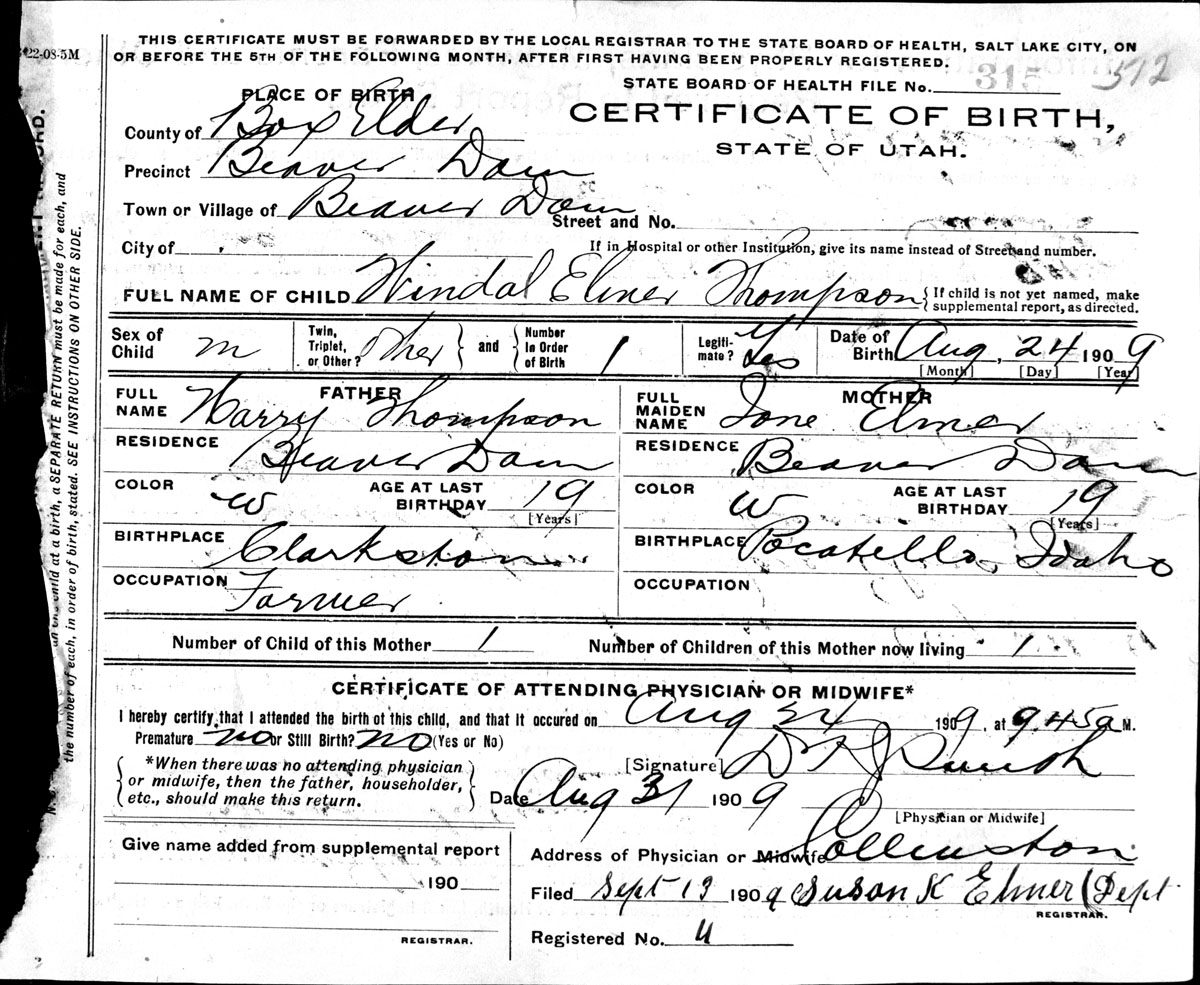 22-08-5M
THIS CERTIFICATE MUST BE FORWARDED BY THE LOCAL REGISTRAR TO THE STATE BOARD OF HEALTH, SALT LAKE CITY, ON
OR BEFORE THE 5TH OF THE FOLLOWING MONTH, AFTER FIRST HAVING BEEN PROPERLY REGISTERED.
STATE BOARD OF HEALTH FILE No. 315 572
PLACE OF BIRTH
CERTIFICATE OF BIRTH,
STATE OF UTAH.
County of Box Elder
Precinct Beaver Dam
Town or Village of Beaver Dam
Street and No.
City of
If in Hospital or other Institution, give its name instead of Street and number.
FULL NAME OF CHILD Windal Elmer Thompson { If child is not yet named, make supplemental report, as directed.
Sex of Child m Twin, Triplet, or Other? other } and { Number In Order of Birth 1 Legiti-mate? Yes Date of Birth Aug, 24 1909
[Month] [Day] [Year]
FATHER
FULL NAME Harry Thompson
RESIDENCE Beaver Dam
COLOR w AGE AT LAST BIRTHDAY 19
[Years]
BIRTHPLACE Clarkston
OCCUPATION Farmer
MOTHER
FULL MAIDEN NAME Ione Elmer
RESIDENCE Beaver Dam
COLOR w AGE AT LAST BIRTHDAY 19
[Years]
BIRTHPLACE Pocatello, Idaho
OCCUPATION
Number of Child of this Mother 1 Number of Children of this Mother now living 1
CERTIFICATE OF ATTENDING PHYSICIAN OR MIDWIFE*
I hereby certify that I attended the birth of this child, and that it occured on Aug 24 1909, at 9.45a M.
Premature no or Still Birth? No (Yes or No)
*When there was no attending physician
or midwife, then the father, householder,
etc., should make this return.
[Signature] Dr
Date Aug 31 1909
[Physician or Midwife]
Address of Physician or Midwife Collinston
Filed Sept 13 1909 Susan K Elmer (Dept
REGISTRAR.
Registered No. 4
Give name added from supplemental report
190
REGISTRAR.
child at a birth, a SEPARATE RETURN must be made for each, and
the number of each, in order of birth, stated. SEE INSTRUCTIONS ON OTHER SIDE.